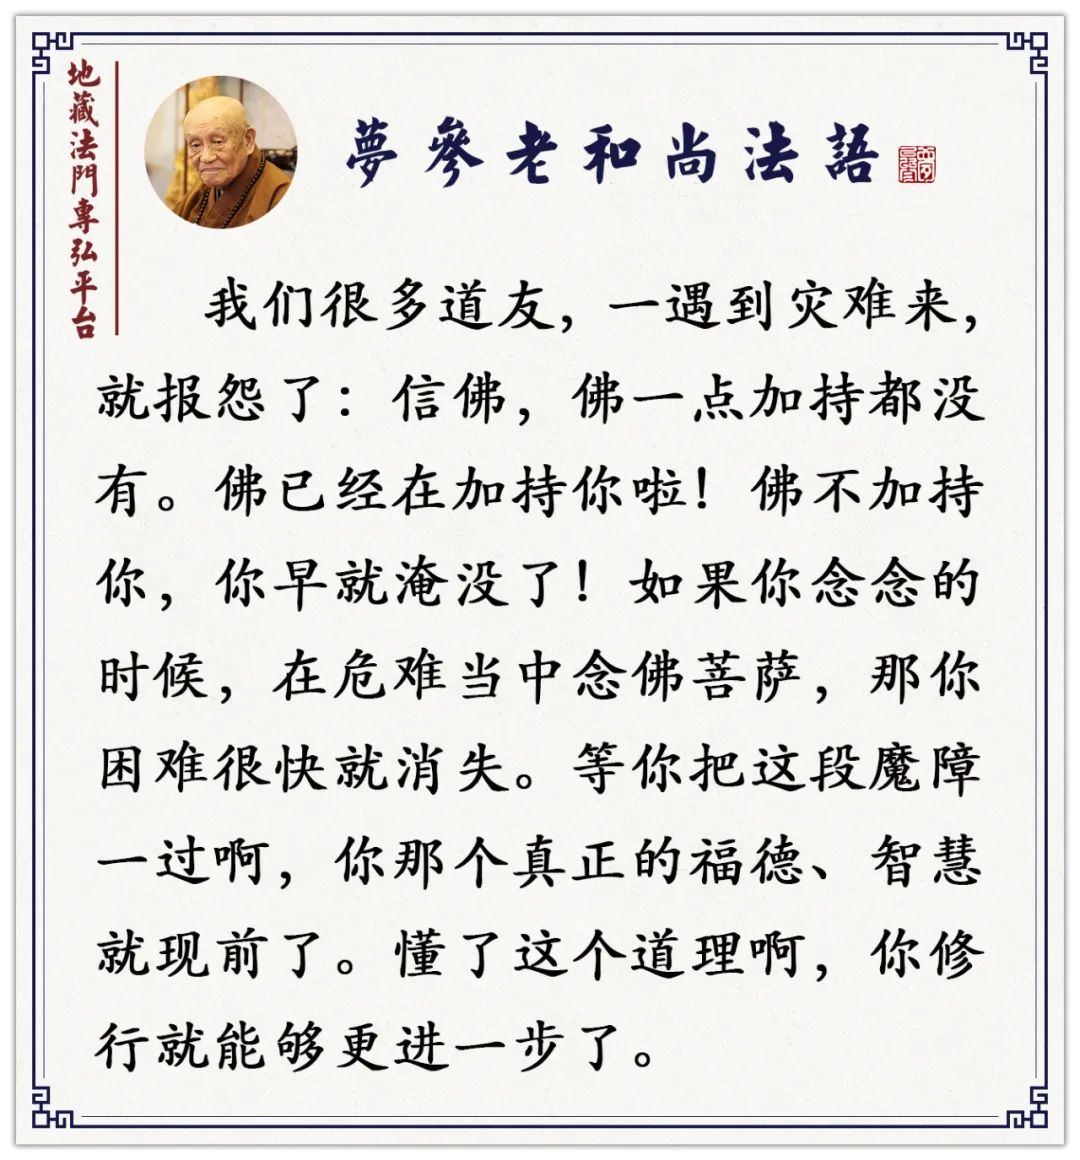 地藏法門專弘平台
夢參老和尚法語
我们很多道友，一遇到灾难来，
就报怨了：信佛，佛一点加持都没
有。佛已经在加持你啦！佛不加持
你，你早就淹没了！如果你念念的
时候，在危难当中念佛菩萨，那你
困难很快就消失。等你把这段魔障
一过啊，你那个真正的福德、智慧
就现前了。懂了这个道理啊，你修
行就能够更进一步了。